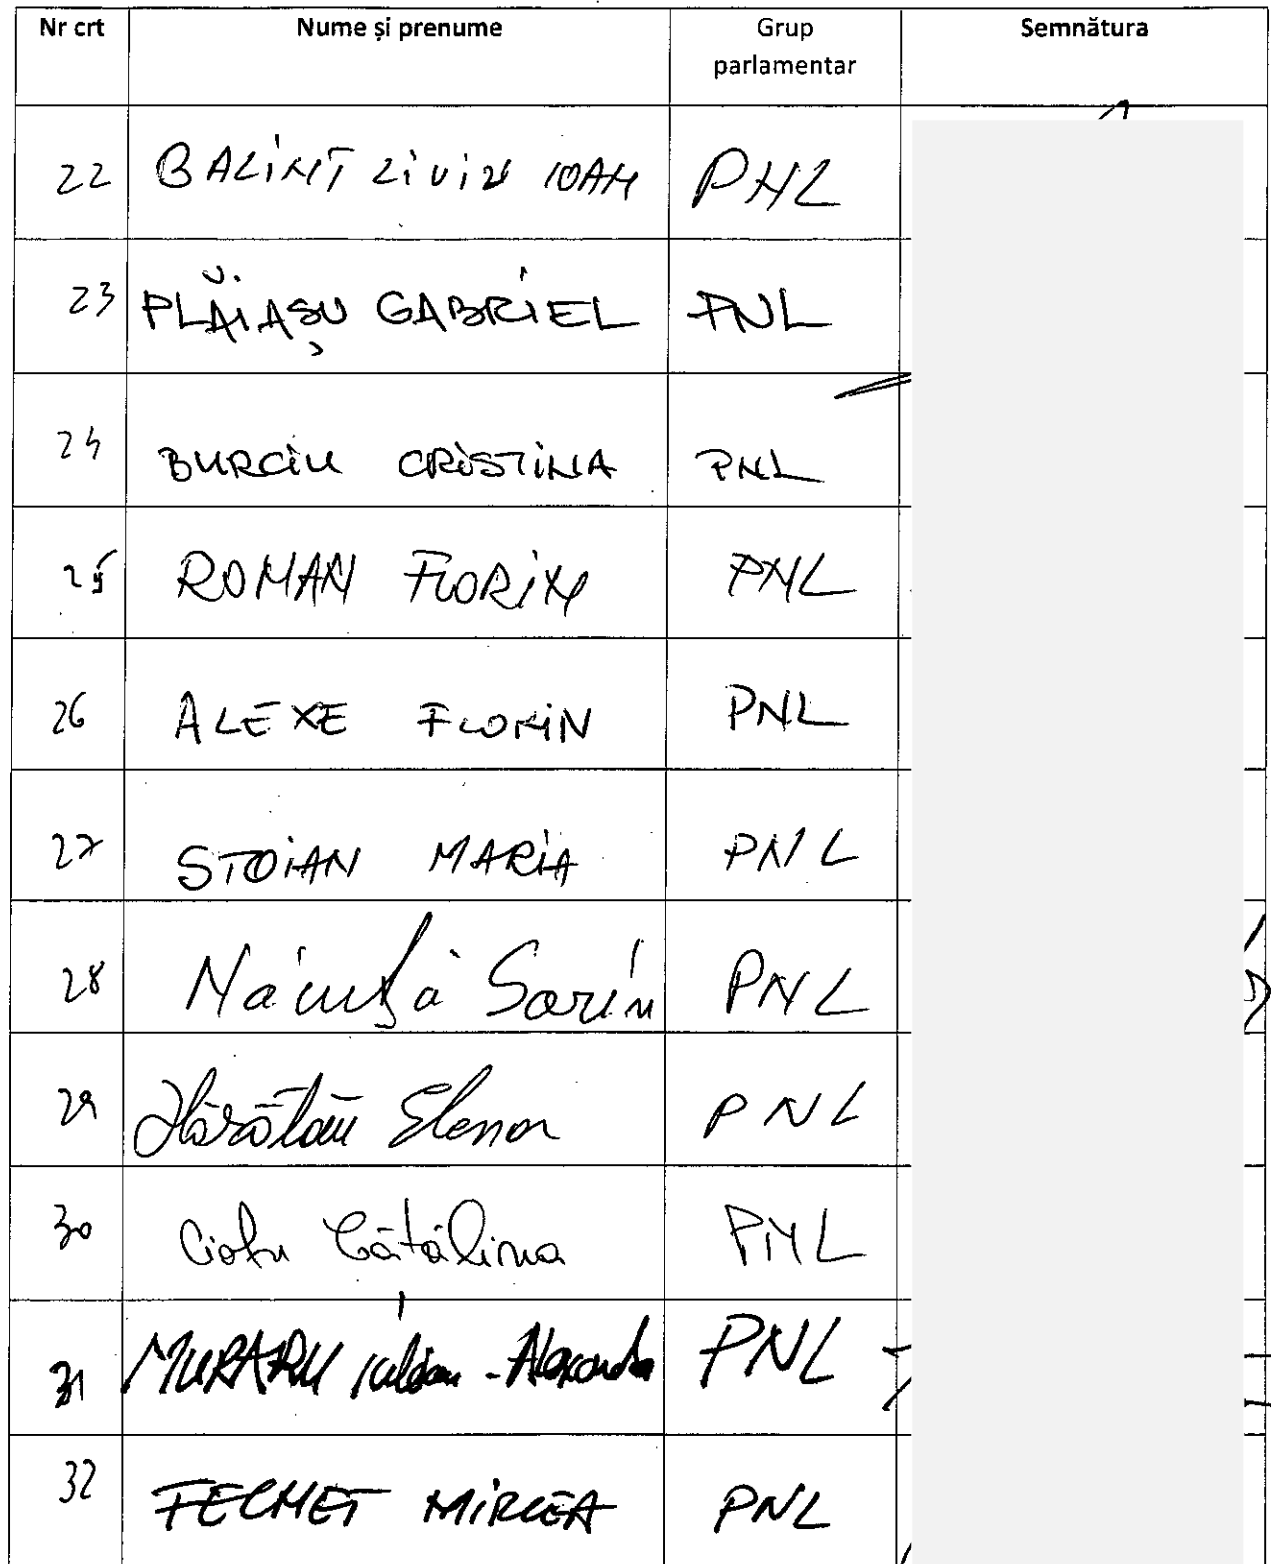 Nr crt Nume și prenume Grup parlamentar Semnătura
22 BALINT LIVIU IOAN PNL
23 PLĂIAȘU GABRIEL PNL
24 BURCIU CRISTINA PNL
25 ROMAN FLORIN PNL
26 ALEXE FLORIN PNL
27 STOIAN MARIA PNL
28 Năcuță Sorin PNL
29 Hărătău Elena PNL
30 Ciofu Cătălina PNL
31 MURARU Iulian - Alexandru PNL
32 FECHET MIRCEA PNL